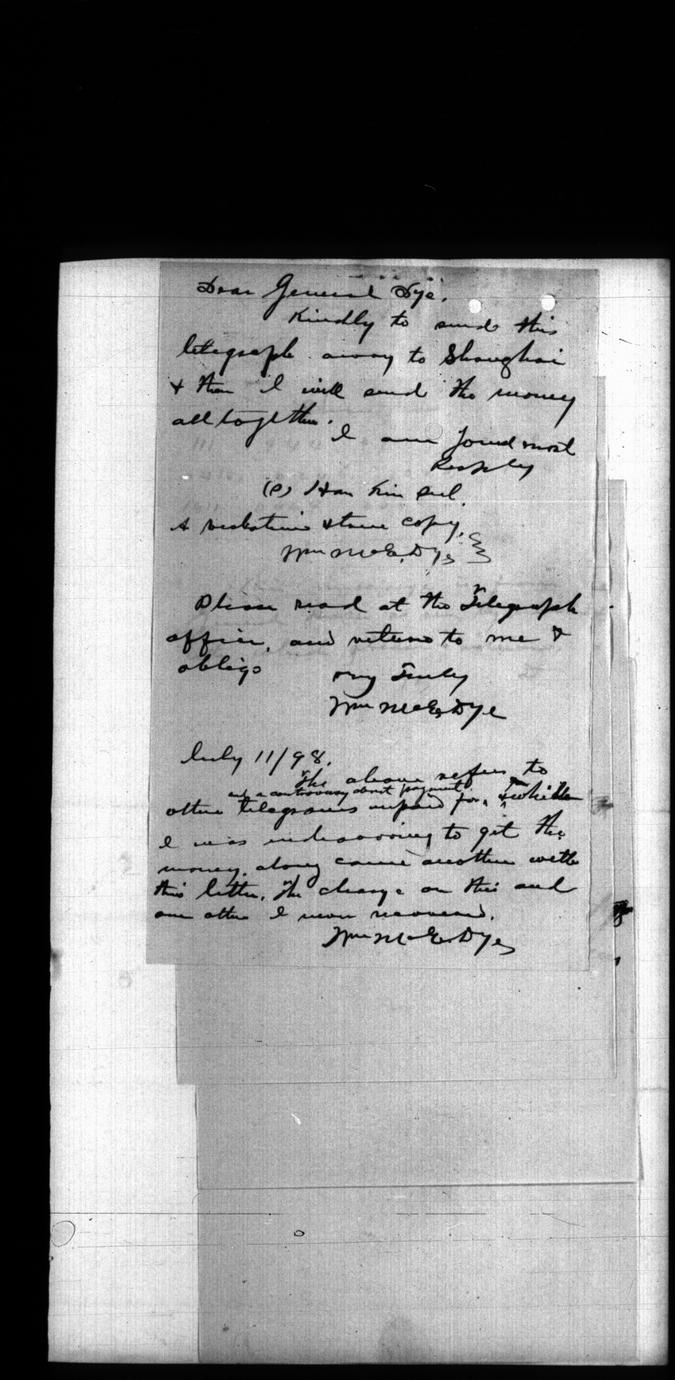 Dear General Dye.
Kindly to send this
telegraph away to Shanghai
& then I will send the money
alltogether.
I am Yours most
Resply
(S) Han Kin Sul.
A verbatim & true copy.
Wm McE. Dye
Please read at the Telegraph
office, and return to me &
oblige
Very Truly
Wm McE. Dye
July 11/98.
The above refers to
and a controversy about payment.
other telegrams unpaid for, while
I was endeavoring to get the
money, along came another with
this letter. The charge on this and
one other I never recovered.
Wm McE. Dye